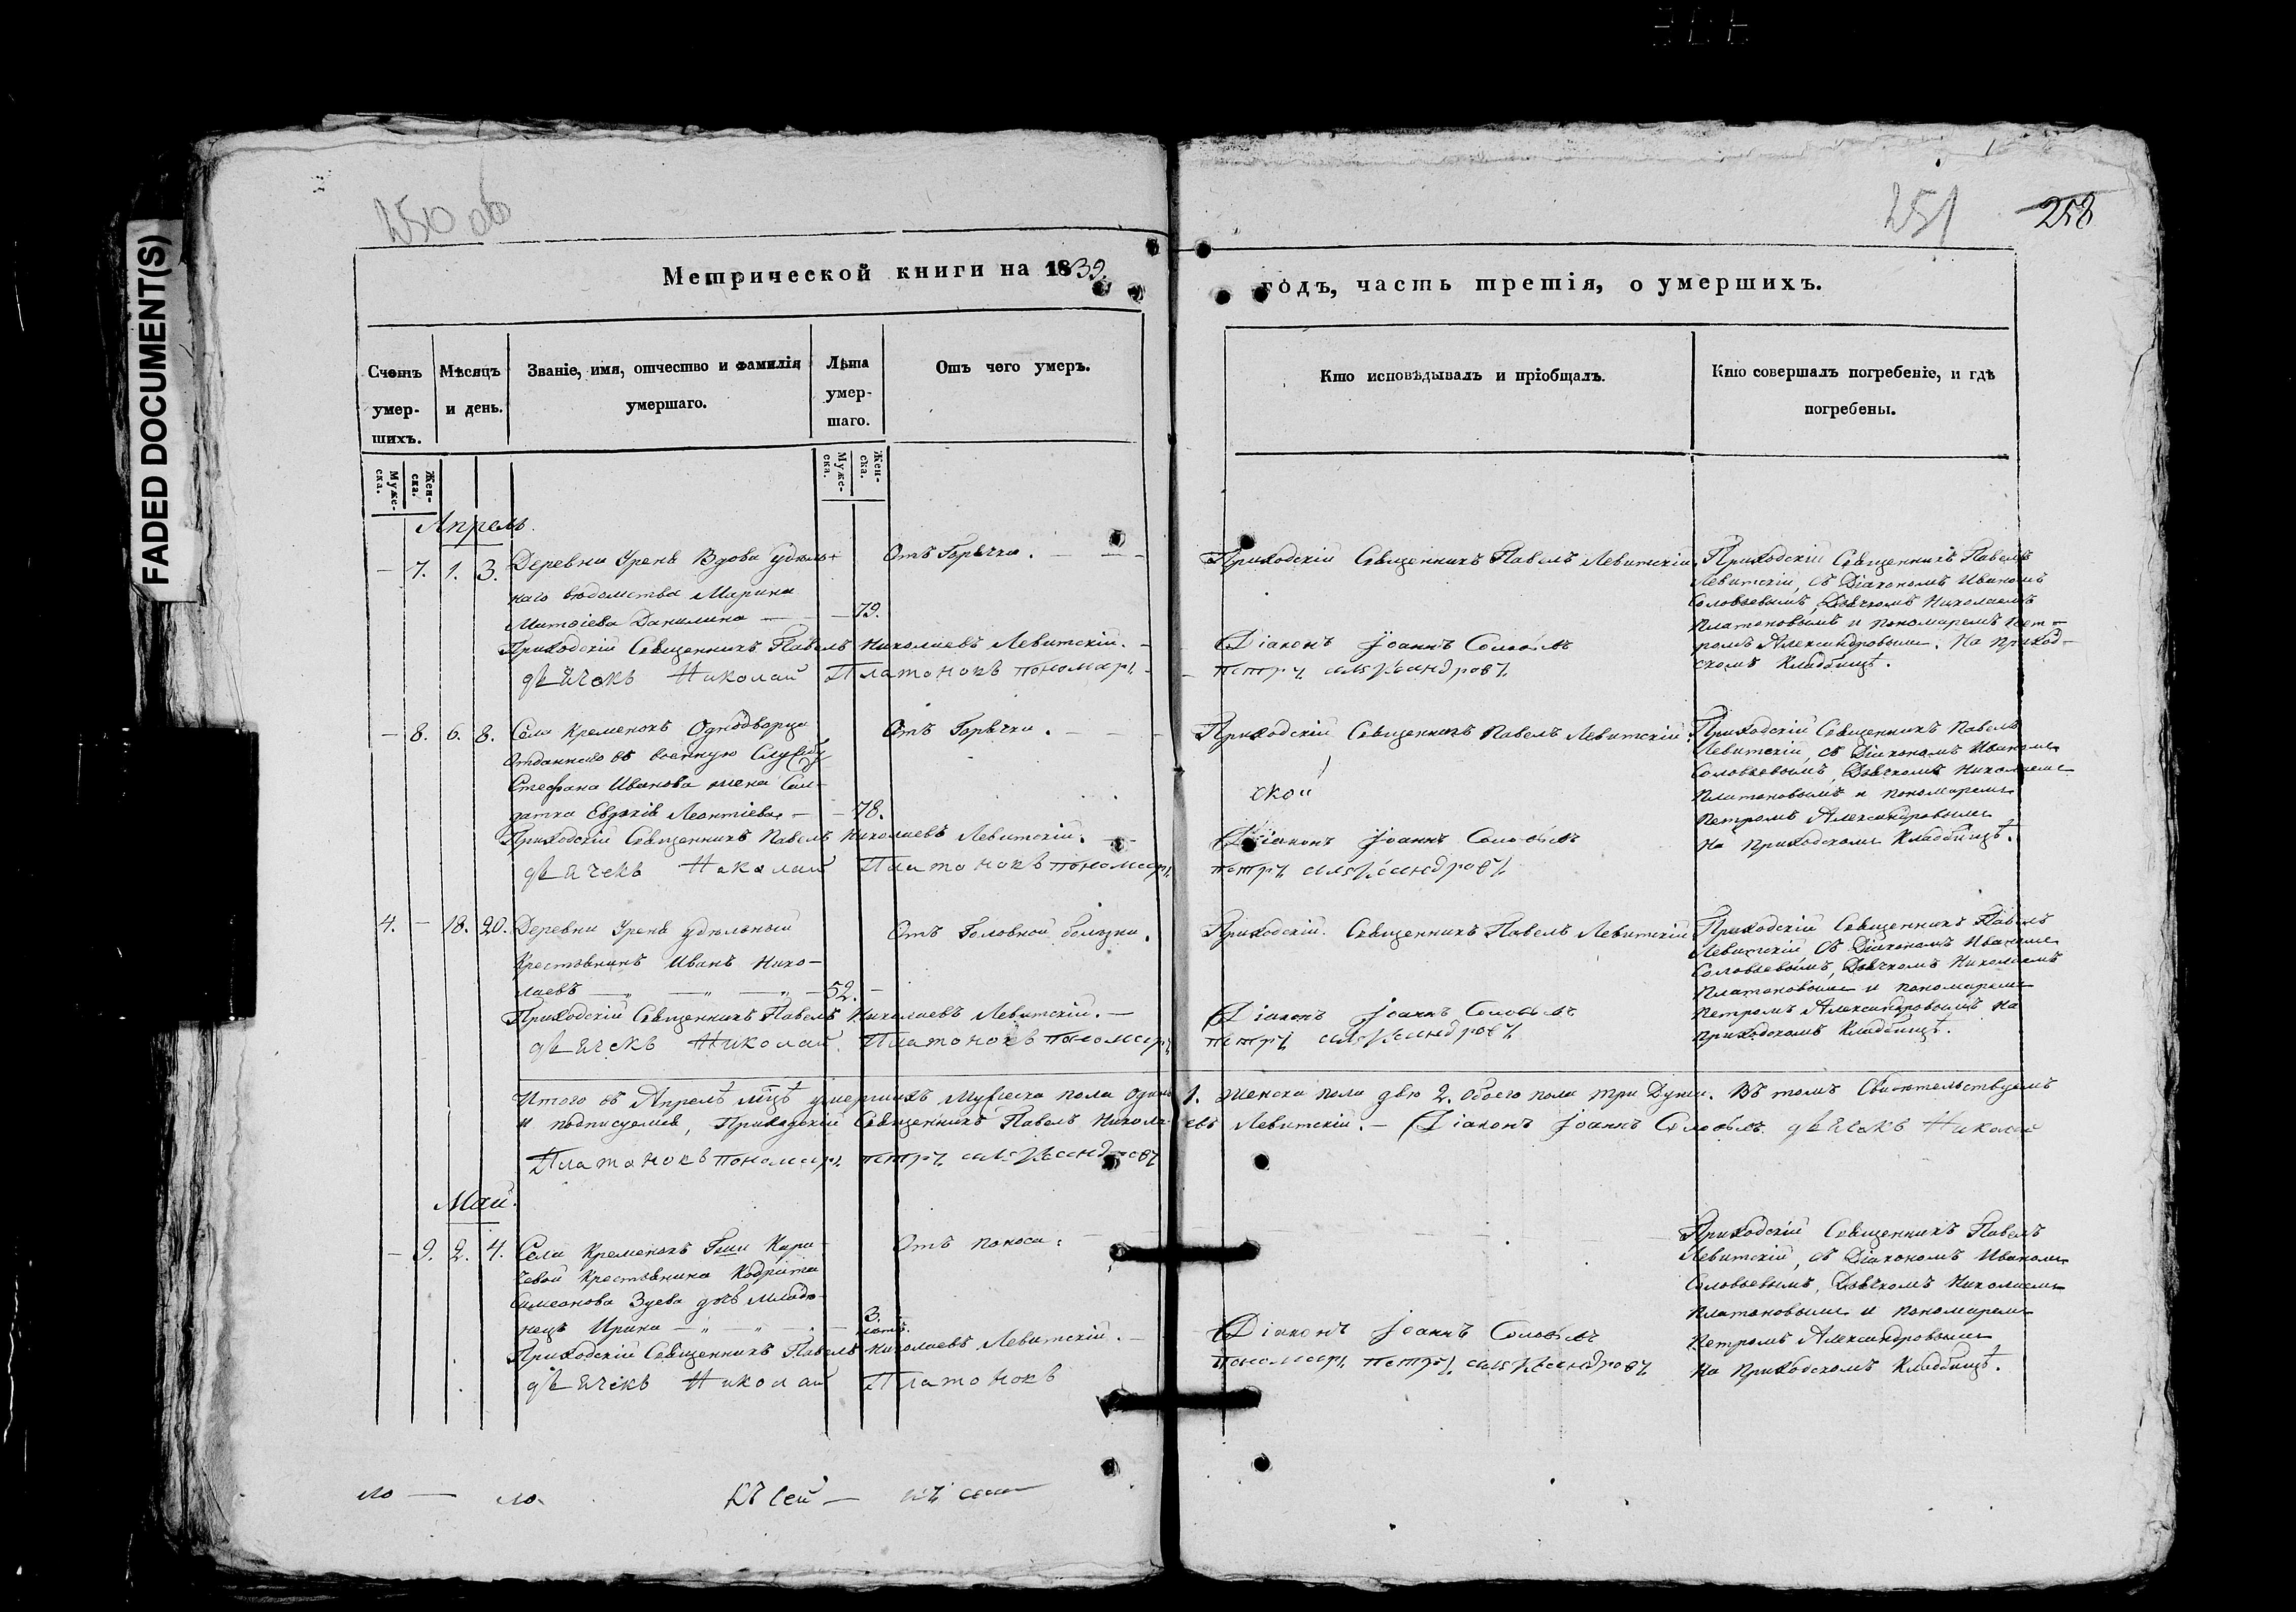 FADED DOCUMENT(S)
250 об
251
258
Метрической книги на 1839.
годъ, часть третія, о умершихъ.
Счетъ умер-шихъ.
Мѣсяцъ и день.
Званіе, имя, отчество и фамилія умершаго.
Лѣта умер-шаго.
Отъ чего умеръ.
Кто исповѣдывалъ и пріобщалъ.
Кто совершалъ погребеніе, и гдѣ погребены.
Муже-ска.
Жен-ска.
Муже-ска.
Жен-ска.
Апрель.
— 7. 1. 3. Деревни Урень Вдова удѣль-
наго вѣдомства Марина
Матѳіева Данилина — 79.
Отъ Горячки.
Приходскій Священникъ Павелъ Левитскій
Приходскій Священникъ Павелъ
Левитскій, съ Діакономъ Иваномъ
Соловьевымъ, Дьячкомъ Николаемъ
Платоновымъ и пономаремъ Пет-
ромъ Александровым. На приход-
скомъ Кладбищѣ.
Приходскій Священникъ Павелъ Николаевъ Левитскій.
дьячекъ Николай Платоновъ пономарь
Діаконъ Іоаннъ Соловьевъ
петръ александровъ
— 8. 6. 8. Села Кременокъ Однодворца
отданнаго въ военную Службу
Стефана Иванова жена Сол-
датка Евдокія Леонтіева — 78.
Отъ Горячки.
Приходскій Священникъ Павелъ Левитскій.
ской
Приходскій Священникъ Павелъ
Левитскій, съ Діакономъ Иваномъ
Соловьевымъ, Дьячкомъ Николаемъ
Платоновымъ и пономаремъ
Петромъ Александровымъ
На приходскомъ Кладбищѣ.
Приходскій Священникъ Павелъ Николаевъ Левитскій.
дьячекъ Николай Платоновъ пономарь
Діаконъ Іоаннъ Соловьевъ
петръ александровъ
4. — 18. 20. Деревни Урень удѣльный
Крестьянинъ Иванъ Нико-
лаевъ — 52.
Отъ Головной болѣзни.
Приходскій Священникъ Павелъ Левитскій
Приходскій Священникъ Павелъ
Левитскій съ Діакономъ Иваномъ
Соловьевымъ, Дьячкомъ Николаемъ
Платоновымъ и пономаремъ
Петромъ Александровымъ На
приходскомъ Кладбищѣ.
Приходскій Священникъ Павелъ Николаевъ Левитскій.
дьячекъ Николай Платоновъ пономарь
Діаконъ Іоаннъ Соловьевъ
петръ александровъ
Итого въ Апрелѣ мцѣ умершихъ Мужеска пола одинъ 1. Женска пола двѣ 2. Обоего пола три Души. Въ томъ Свидѣтельствуемъ
и подписуемся, Приходскій Священникъ Павелъ Николаевъ Левитскій. — Діаконъ Іоаннъ Соловьевъ дьячекъ Николай
Платоновъ пономарь петръ александровъ
Май.
— 9. 2. 4. Села Кременокъ Гжи Кара-
чевой Крестьянина Кодрата
Симеонова Зуева дочь Младе-
нецъ Ирина — 3. лѣтъ.
Отъ поноса.
Приходскій Священникъ Павелъ
Левитскій, съ Діакономъ Иваномъ
Соловьевымъ, Дьячкомъ Николаемъ
Платоновымъ и пономаремъ
Петромъ Александровымъ
На Приходскомъ Кладбищѣ.
Приходскій Священникъ Павелъ Николаевъ Левитскій.
дьячекъ Николай Платоновъ
Діаконъ Іоаннъ Соловьевъ
пономарь петръ александровъ
Къ сей — къ сей